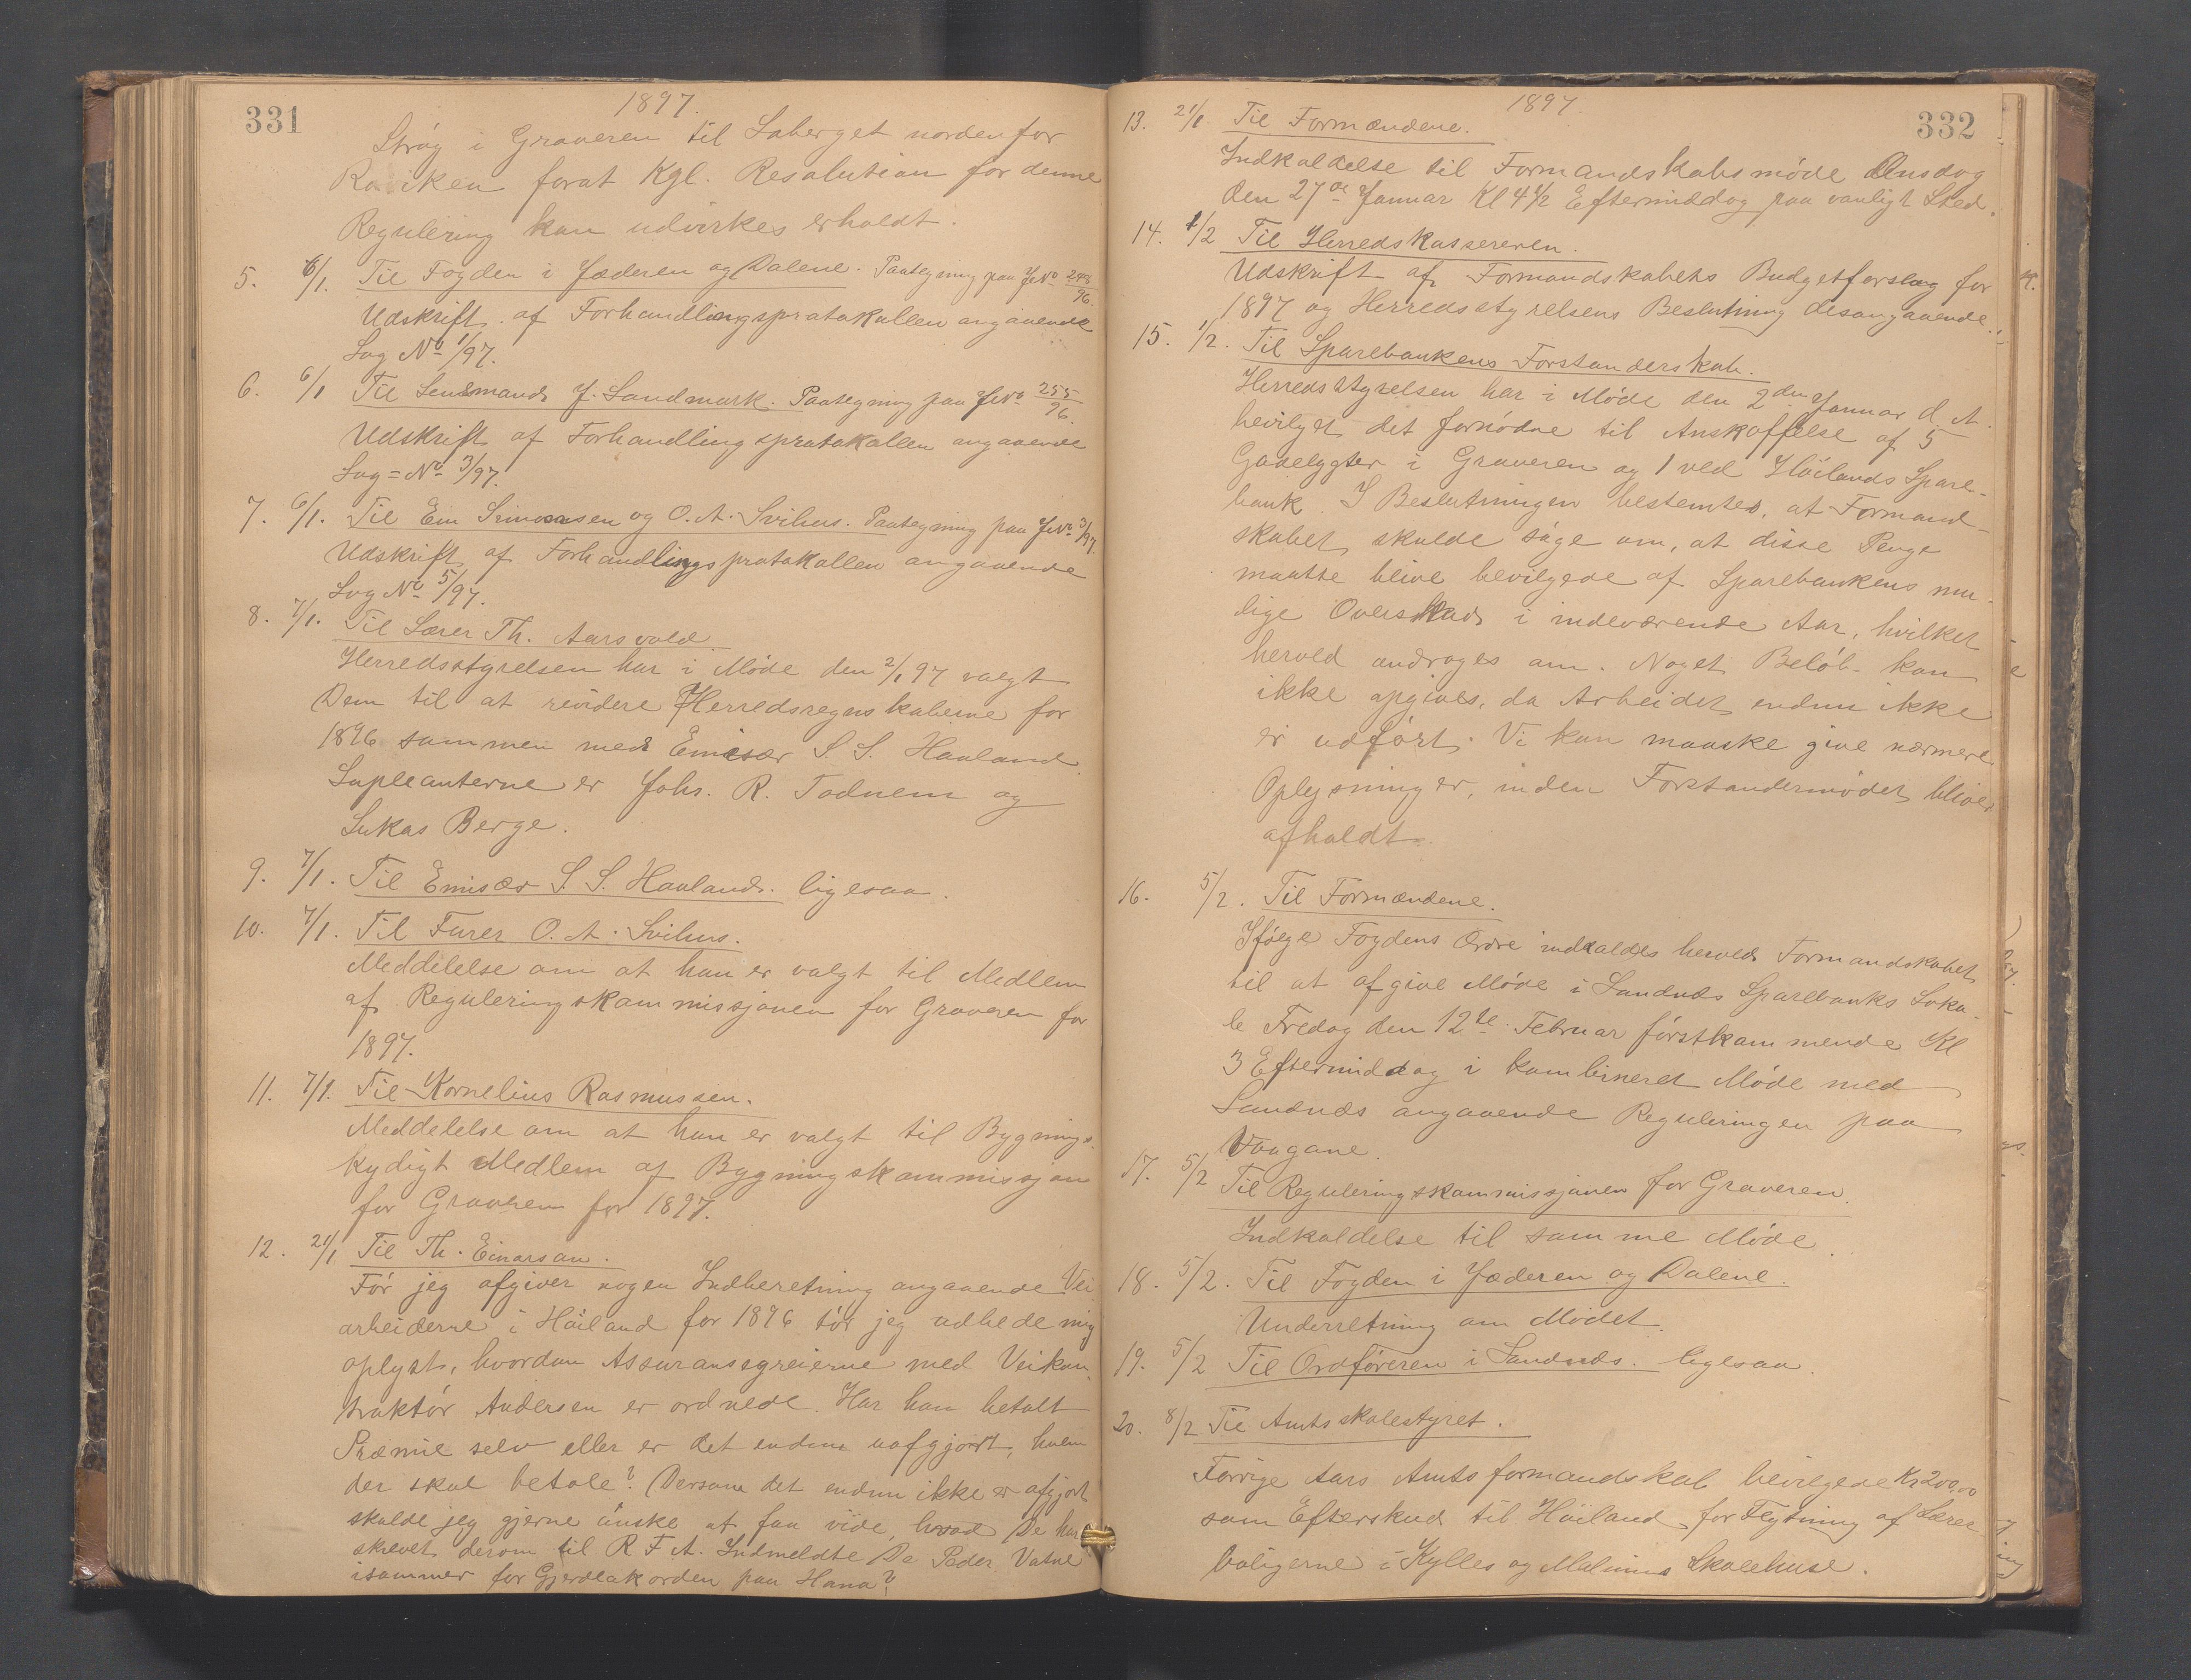 331
1897.
Strøg i Graveren til Soberget nordenfor
forat Kgl. Resolution for denne
Regulering kan udvirkes erholdt.
5. 6/1. Til Fogden i Jæderen og Dalene. Paategning paa JNo 248/96.
Udskrift af Forhandlingsprotokollen angaaende
Sag No 1/97.
6. 6/1 Til Lensmand J. Sandmark. Paategning paa JNo 255/96.
Udskrift af Forhandlingsprotokollen angaaende
Sag=No 3/97.
7. 6/1. Til Em Simonsen og O. A. Svihus. Paategning paa JNo 3/97.
Udskrift af Forhandlingsprotokollen angaaende
Sag No 5/97.
8. 7/1. Til Lærer Th. Aarsvold.
Herredsstyrelsen har i Møde den 2/1 97 valgt
Dem til at revidere Herredsregnskaberne for
1896 sammen med Emisær S. S. Haaland.
Supleanterne er Johs. R. Todnem og
Lukas Berge.
9. 7/1. Til Emisær S. S. Haaland. ligesaa.
10. 7/1. Til Furer O. A. Svihus.
Meddelelse om at han er valgt til Medlem
af Reguleringskommissjonen for Graveren for
1897.
11. 7/1. Til Kornelius Rasmussen.
Meddelelse om at han er valgt til Bygnings-
kydigt Medlem af Bygningskommissjon
for Graveren for 1897.
12. 21/1 Til Th. Einarsen.
Før jeg afgiver nogen Indberetning angaaende Vei
arbeiderne i Høiland for 1896 tør jeg udbede mig
oplyst, hvordan Assuransegreierne med Veikon-
traktør Andersen er ordnede. Har han betalt
Præmie selv eller er det endnu uafgjort, hvem
der skal betale? Dersom det endnu ikke er afgjort
skulde jeg gjerne ønske at faa vide, hvad De har
skrevet derom til R F A. Indmeldte De Peder Vatne
isommer for Gjerdeakorden paa Hana?
332
1897.
13. 21/1. Til Formændene.
Indkaldelse til Formandskabsmøde Onsdag
den 27de Januar Kl 4 1/2 Eftermiddag paa vanligt Sted.
14. 1/2 Til Herredskassereren.
Udskrift af Formandskabets Budgetforslag for
1897 og Herredsstyrelsens Beslutning desangaaende.
15. 1/2. Til Sparebankens Forstanderskab.
Herredsstyrelsen har i Møde den 2den Januar d. A.
bevilget det fornødne til Anskaffelse af 5
Gadelygter i Graveren og 1 ved Høilands Spare-
bank. I Beslutningen bestemtes, at Formand-
skabet skulde søge om, at disse Penge
maatte blive bevilgede af Sparebankens mu-
lige Overskud i indeværende Aar, hvilket
herved androges om. Noget Beløb kan
ikke opgives, da Arbeidet endnu ikke
er udført. Vi kan maaske give nærmere
Oplysninger, inden Forstandermødet bliver
afholdt.
16. 5/2. Til Formændene.
Ifølge Fogdens Ordre indkaldes herved Formandskabet
til at afgive Møde i Sandnes Sparebanks Loka-
le Fredag den 12te Februar førstkommende Kl
3 Eftermiddag i kombineret Møde med
Sandnes angaaende Reguleringen paa
Vaagane.
17. 5/2 Til Reguleringskommissjonen for Graveren.
Indkaldelse til samme Møde.
18. 5/2. Til Fogden i Jæderen og Dalene.
Underretning om Mødet.
19. 5/2 Til Ordføreren i Sandnes. ligesaa.
20. 8/2 Til Amtsskolestyret.
Forrige Aars Amtsformandskab bevilgede Kr 200,00
som Efterskud til Høiland for Flytning af Lærer
boligerne i Kylles og Malmins Skolehuse.